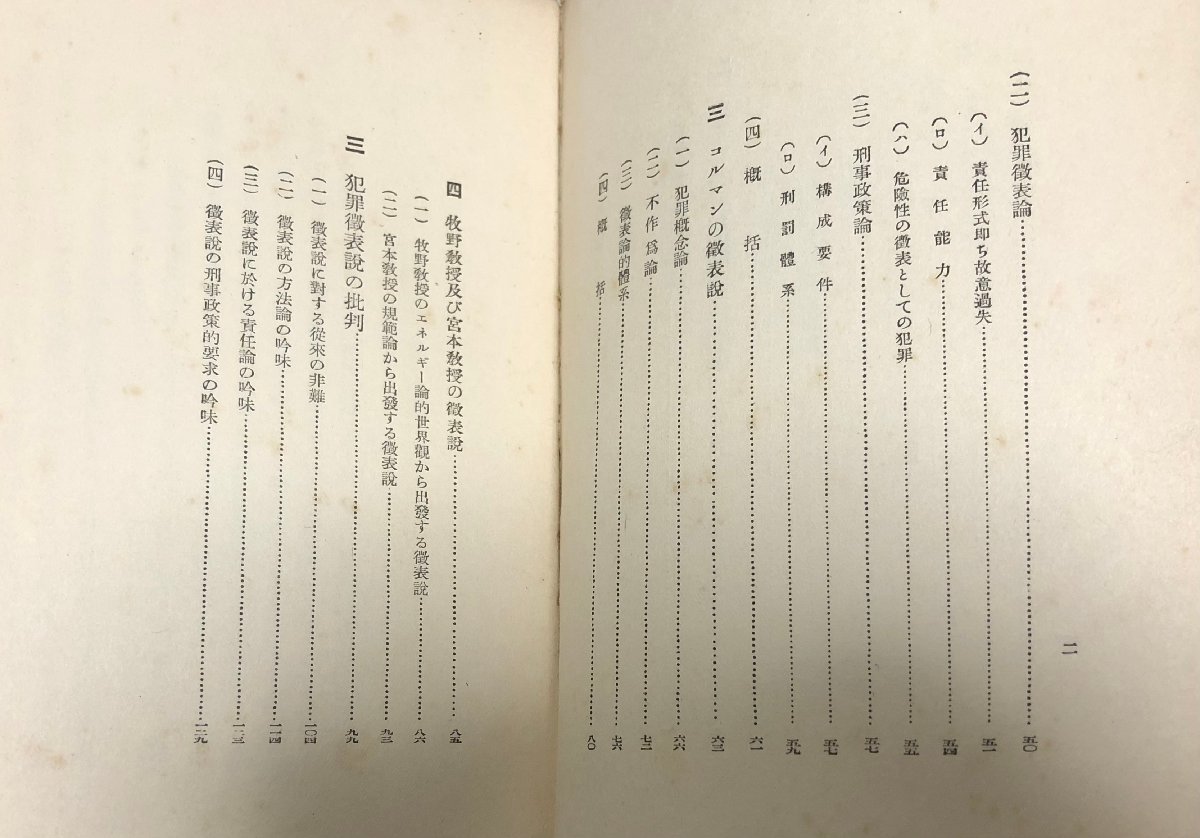 二
(二) 犯罪徴表論……五〇
(イ) 責任形式即ち故意過失……五一
(ロ) 責任能力……五四
(ハ) 危險性の徴表としての犯罪……五五
(三) 刑事政策論……五七
(イ) 構成要件……五七
(ロ) 刑罰體系……五九
(四) 概括……六一
三 コルマンの徴表說……六三
(一) 犯罪概念論……六六
(二) 不作爲論……七二
(三) 徴表論的體系……七六
(四) 概括……八〇
四 牧野敎授及び宮本敎授の徴表說……八五
(一) 牧野敎授のエネルギー論的世界觀から出發する徴表說……八六
(二) 宮本敎授の規範論から出發する徴表說……九三
三 犯罪徴表說の批判……九九
(一) 徴表說に對する從來の非難……一〇四
(二) 徴表說の方法論の吟味……一一四
(三) 徴表說に於ける責任論の吟味……一二三
(四) 徴表說の刑事政策的要求の吟味……一二九